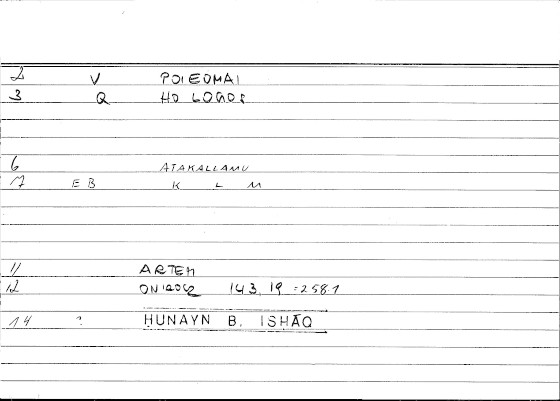 2 V POIEOMAI
3 Q HO LOGOS
6 ATAKALLAMU
7 EB K L M
11 ARTEM
12 ONIROCR 143, 19 = 258.1
14 ? ḤUNAYN B. ISḤĀQ